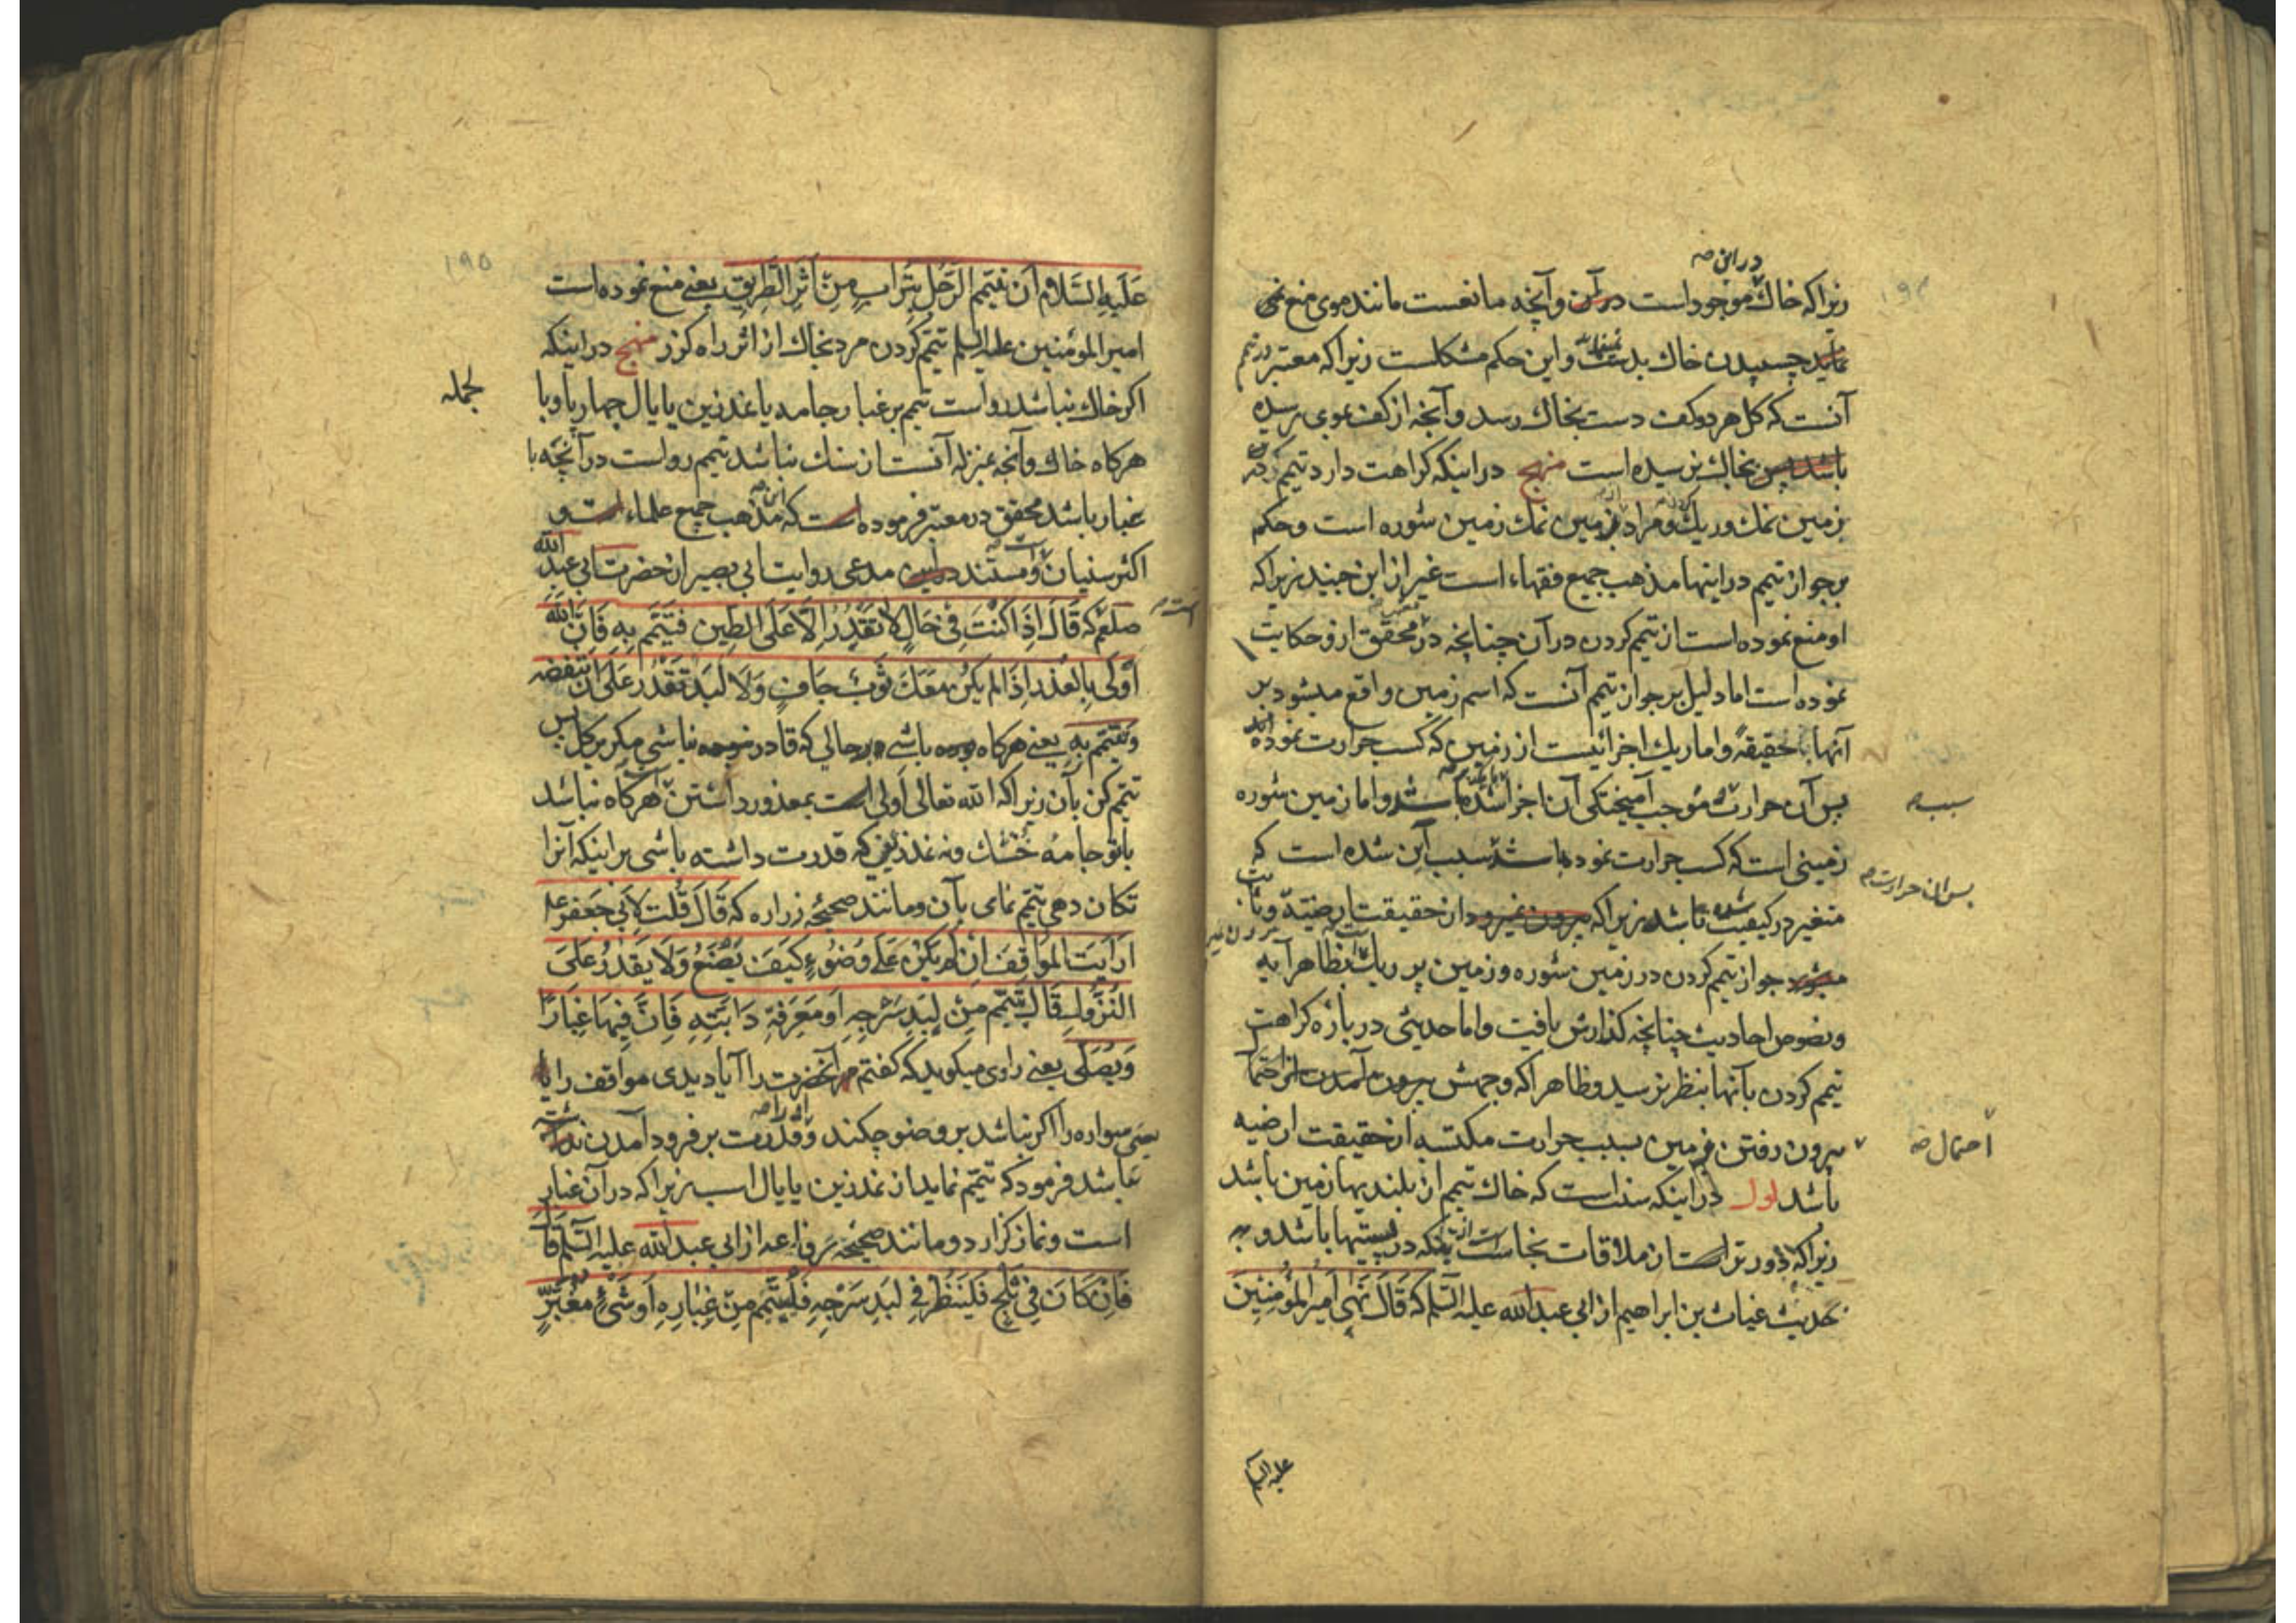 در این صح
زیرا که خاک موجود است در آن و آنچه مانعست مانند موی منع نمی
نماید چسپیدن خاک بدست و این حکم مشکلست زیرا که معتبر در تیمم
آنست که کل هر دو کف دست بخاک رسد و آنچه از کف بموی رسیده
باشد پس بخاک نرسیده است منهج در اینکه کراهت دارد تیمم کردن
بزمین نمک و ریک و مراد بزمین نمک زمین شوره است و حکم
بر جواز تیمم در اینها مذهب جمیع فقهاء است غیر از ابن جنید زیرا که
او منع نموده است از تیمم کردن در آن چنانچه در محقق ازو حکایت
نموده است اما دلیل بر جواز تیمم آنست که اسم زمین واقع میشود بر
آنها حقیقةً و اما ریک اجزائیست از زمین که کسب حرارت نموده اند
پس آن حرارت موجب آمیختکی آن اجزا شده باشد و اما زمین شوره
سبب
زمینی است که کسب حرارت نموده باشد سبب این شده است که
پس ان حرارت
متغیر در کیفیت شده باشد زیرا که بیرون نمیرود از حقیقت ارضیة و ثابت
میشود جواز تیمم کردن در زمین شوره و زمین پر ریک بظاهر آیه
و نصوص احادیث چنانچه کذارش یافت و اما حدیثی در باره کراهت
تیمم کردن بآنها بنظر نرسید و ظاهرا که وجهش بیرون آمدن از احتمال
بیرون رفتن زمین بسبب حرارت مکتسبه از حقیقت ارضیه
احتمال صح
باشد اول در اینکه سنت است که خاک تیمم از بلندیها زمین باشد
زیرا که دورتر است از ملاقات نجاست از آنکه در پستیها باشد و به
حدیث غیاث بن ابراهیم از ابی عبدالله علیه السلم که قَالَ نَهَی اَمِیرُ المُؤْمِنِینَ
علیه السلام
۱۹۵
عَلَیهِ السَّلَامُ اَنْ یَتَیَمَّمَ الرَّجُلُ بِتُرَابٍ مِنْ اَثَرِ الطَّرِیقِ یعنی منع نموده است
امیر المومنین علیه السلم تیمم کردن مرد بخاک از اثر راه کزر منهج در اینکه
اکر خاک نباشد رواست تیمم بر غبار جامه یا نمد زین یا یال چهارپا و با
لجمله
هرکاه خاک و آنچه بمنزله آنست از سنک نباشد تیمم رواست در آنچه با
غبار باشد محقق در معتبر فرموده است که این مذهب جمیع علماء است و
اکثر سنیان و مستند در این مدعی روایت ابی بصیر از حضرت ابی عبد الله
صلعم که قَالَ اِذَا کُنْتَ فِی حَالٍ لَا تَقْدِرُ اِلَّا عَلَی الطِّینِ فَتَیَمَّم بِهِ فَاِنَّ اللهَ
اَوْلَی بِالْعُذْرِ اِذَا لَمْ یَکُنْ مَعَکَ ثَوْبٌ جَافٌ وَلَا لَبَدٌ تَقْدِرُ عَلَی اَنْ تَنْفُضَهُ
وَتَتَیَمَّمَ بِهِ یعنی هرکاه بوده باشی در حالی که قادر نبوده نباشی مکر بر کل پس
تیمم کن بآن زیرا که الله تعالی اولی است بمعذور داشتن هرکاه نباشد
با تو جامه خشک و نه نمد زینی که قدرت داشته باشی بر اینکه آنرا
تکان دهی تیمم نمای بآن و مانند صحیحه زراره که قَالَ قُلْتُ لِاَبِی جَعْفَرٍ عله
اَرَأَیْتَ المَوَاقِفَ اِنْ لَمْ یَکُنْ عَلَی وُضُوءٍ کَیْفَ یَصْنَعُ وَلَا یَقْدِرُ عَلَی
النُّزُولِ قَالَ یَتَیَمَّمُ مِنْ لِبْدِ سَرْجِهِ اَوْ مَعْرَفَةِ دَابَّتِهِ فَاِنَّ فِیهَا غُبَارًا
وَیُصَلِّی یعنی راوی میکوید که کفتم مر آنحضرت را آیا دیدی مواقف را
یعنی سواره را اکر نباشد بر وضو چکند و قدرت بر فرود آمدن نداشته
باشد فرمود که تیمم نماید از نمد زین یا یال اسب زیرا که در آن غبار
است و نماز کزارد و مانند صحیحه رفاعه از ابی عبدالله علیه السلم قال
فَاِنْ کَانَ فِی ثَلْجٍ فَلْیَنْظُرْ فِی لِبَدِ سَرْجِهِ فَلْیَتَیَمَّمْ مِنْ غُبَارِهِ اَوْ شَیْءٍ مُغْبَرٍّ